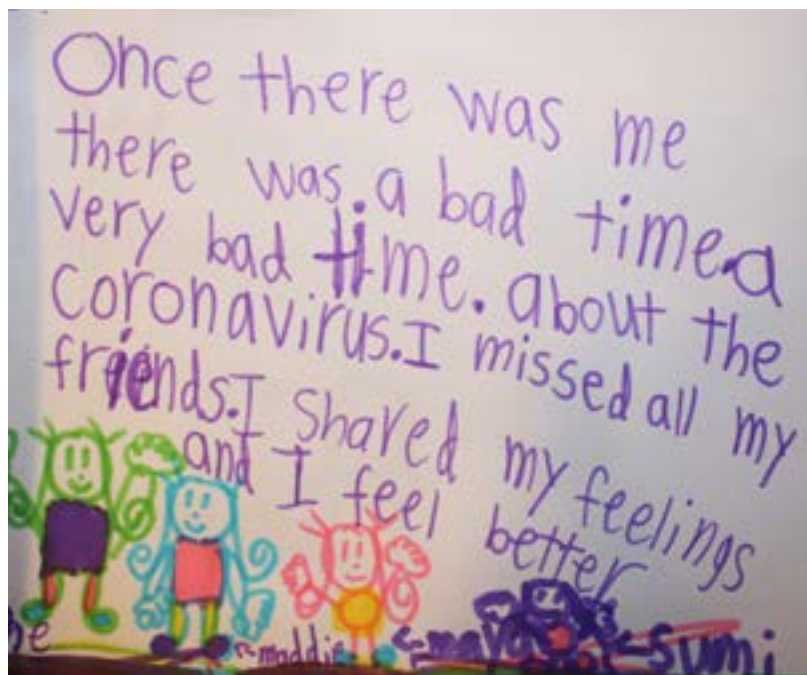 Once there was me
there was.a bad time.a
very bad time. about the
coronavirus.I missed all my
friends.I shared my feelings
and I feel better
maddie
maya
sumi